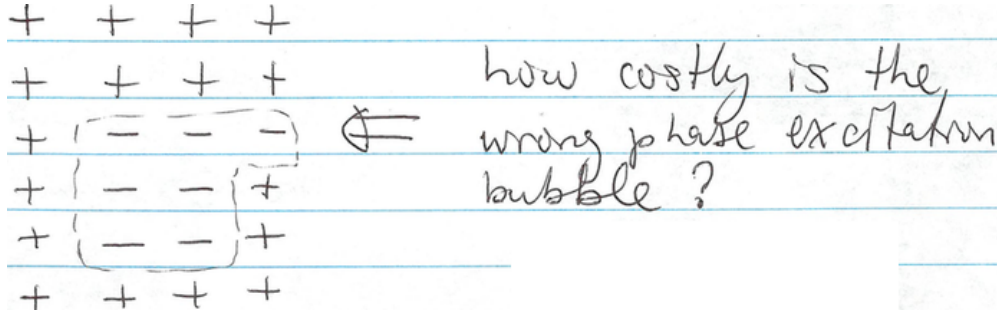 + + + +
+ + + + how costly is the
+ − − − ⇐ wrong phase excitation
+ − − + bubble ?
+ − − +
+ + + +